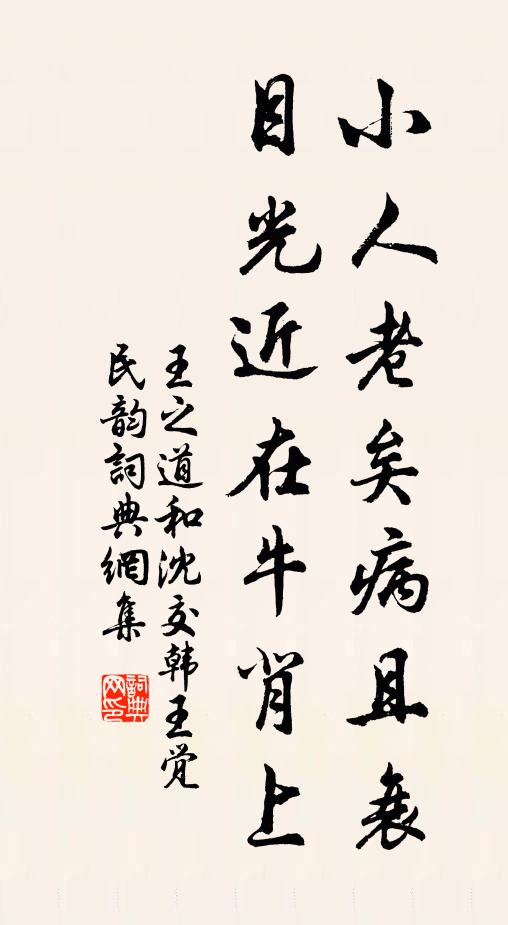 小人老矣病且衰
目光近在牛背上
王之道和沈文韩王觉
民韵詞典網集
詞典网印